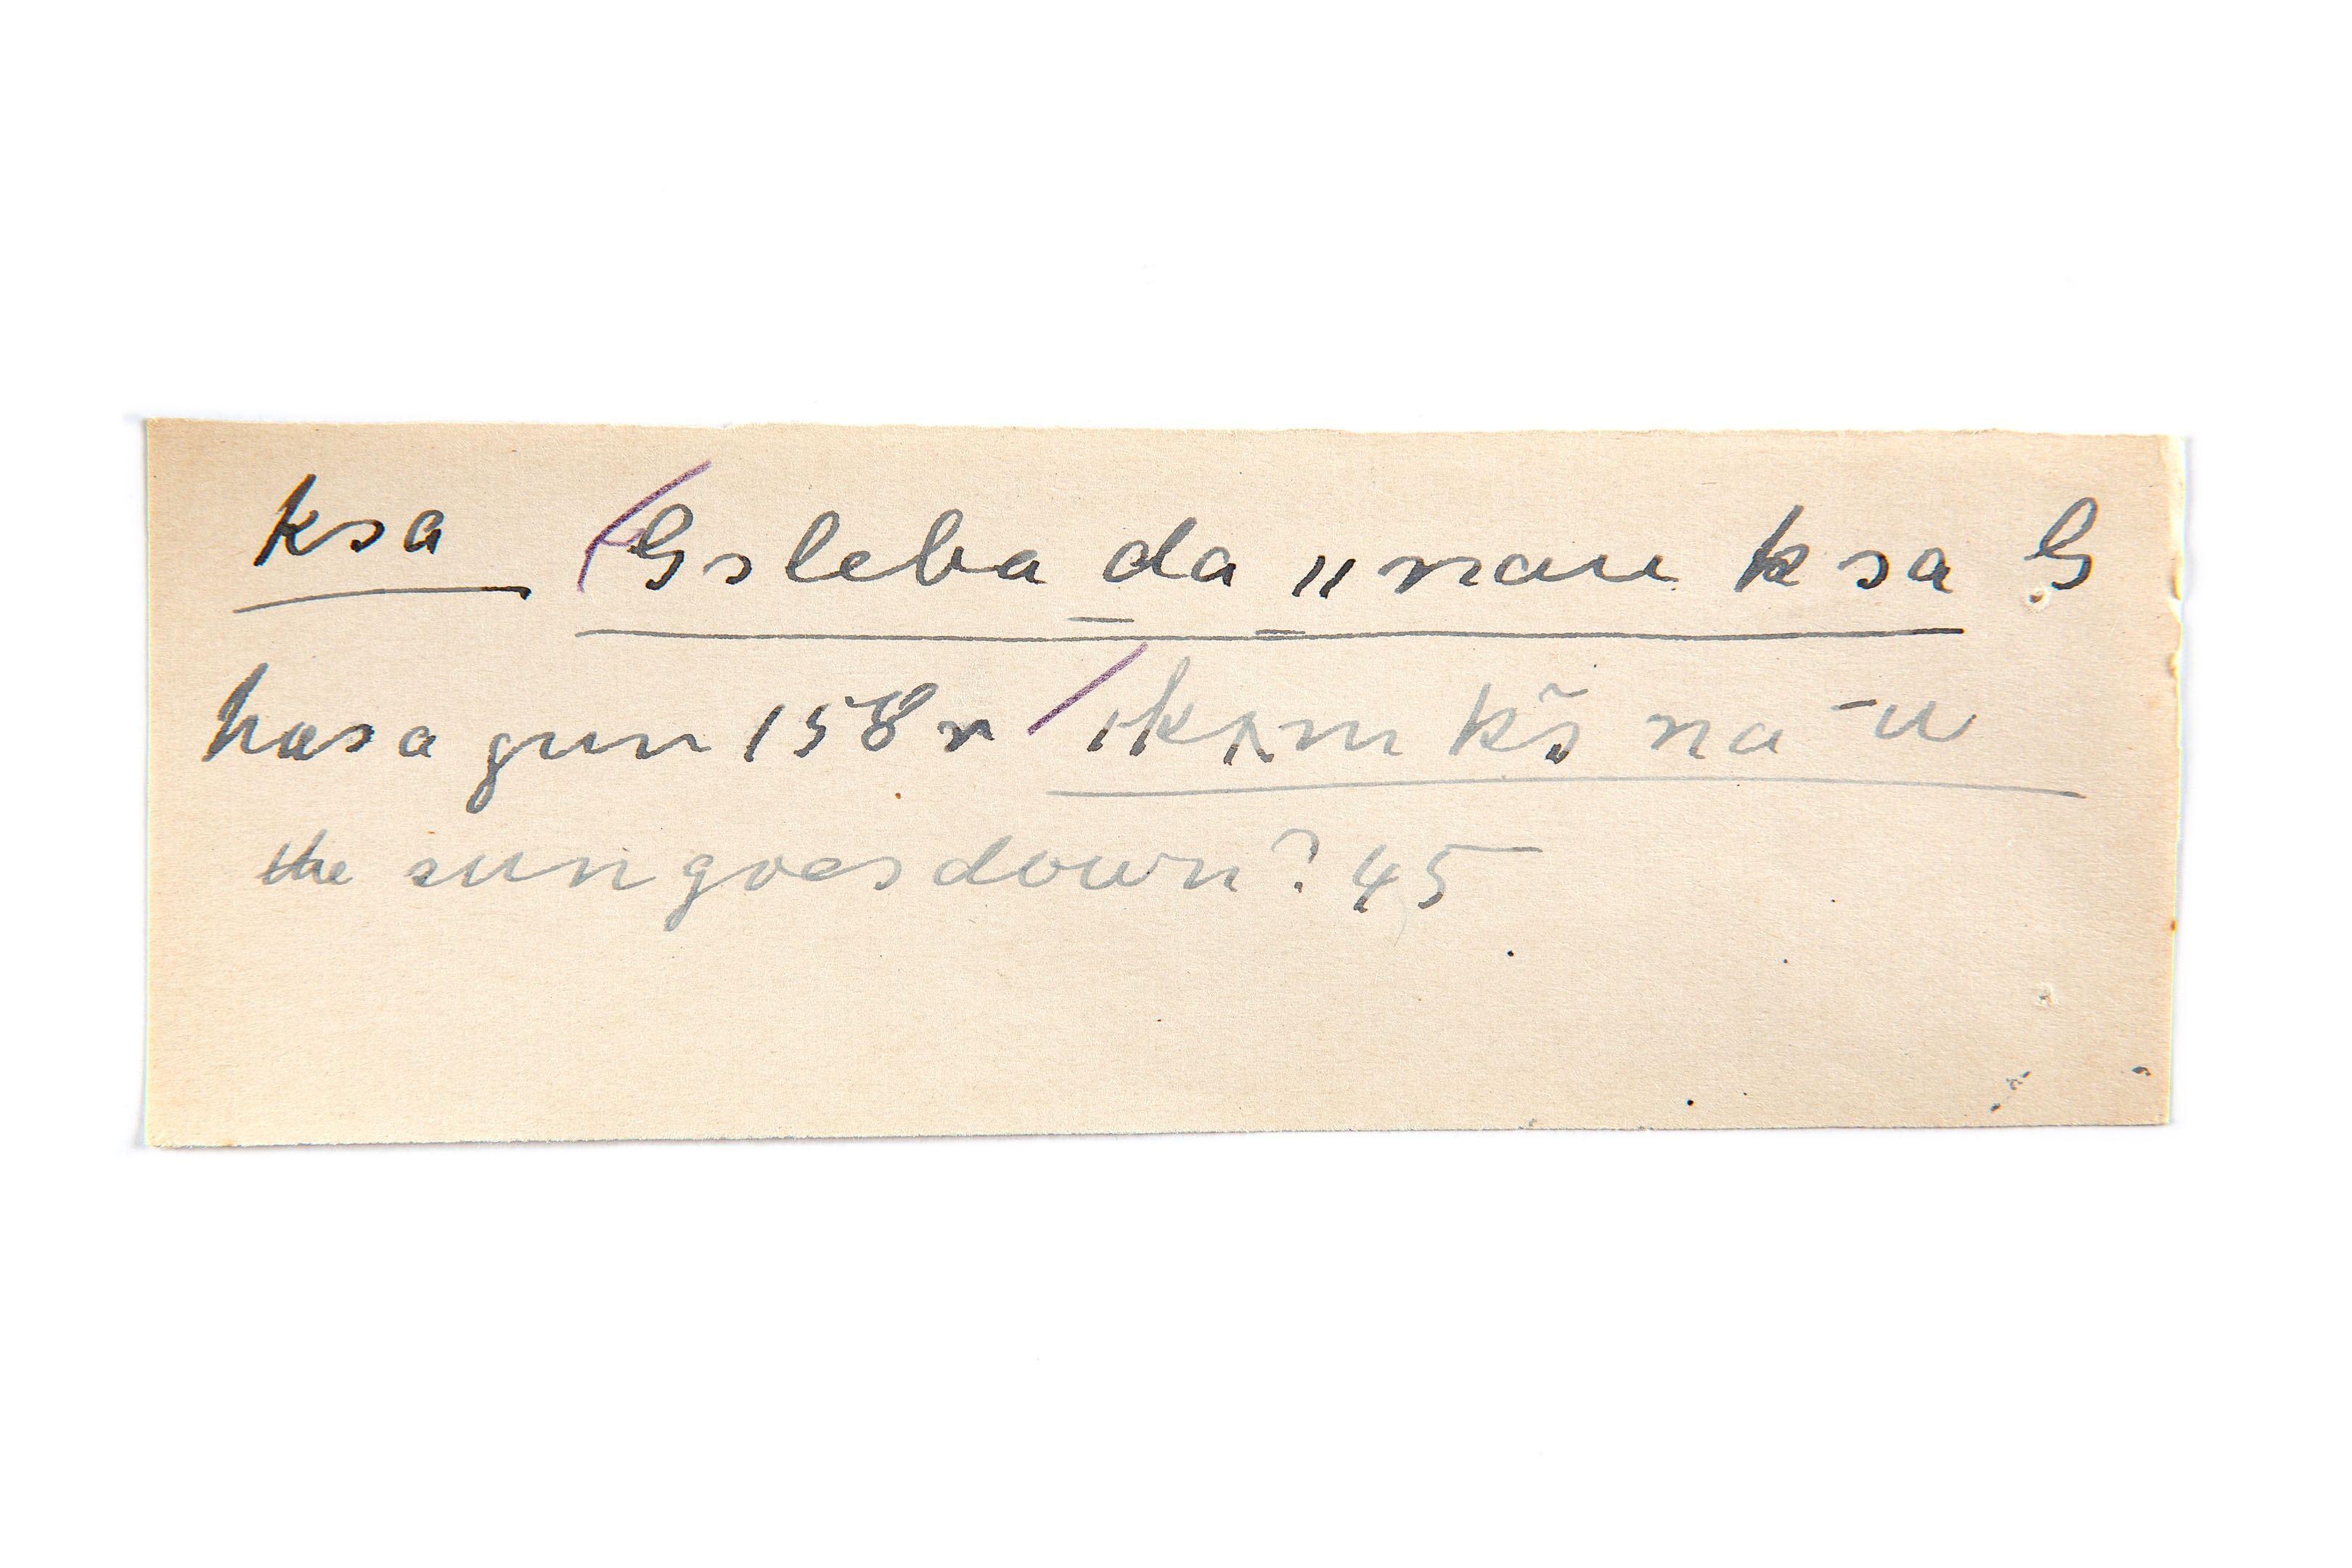 ksa Gsleba da ıı nau ksa G
has a gun 158 r / ıkxm kš na -u
the sun goes down? 45